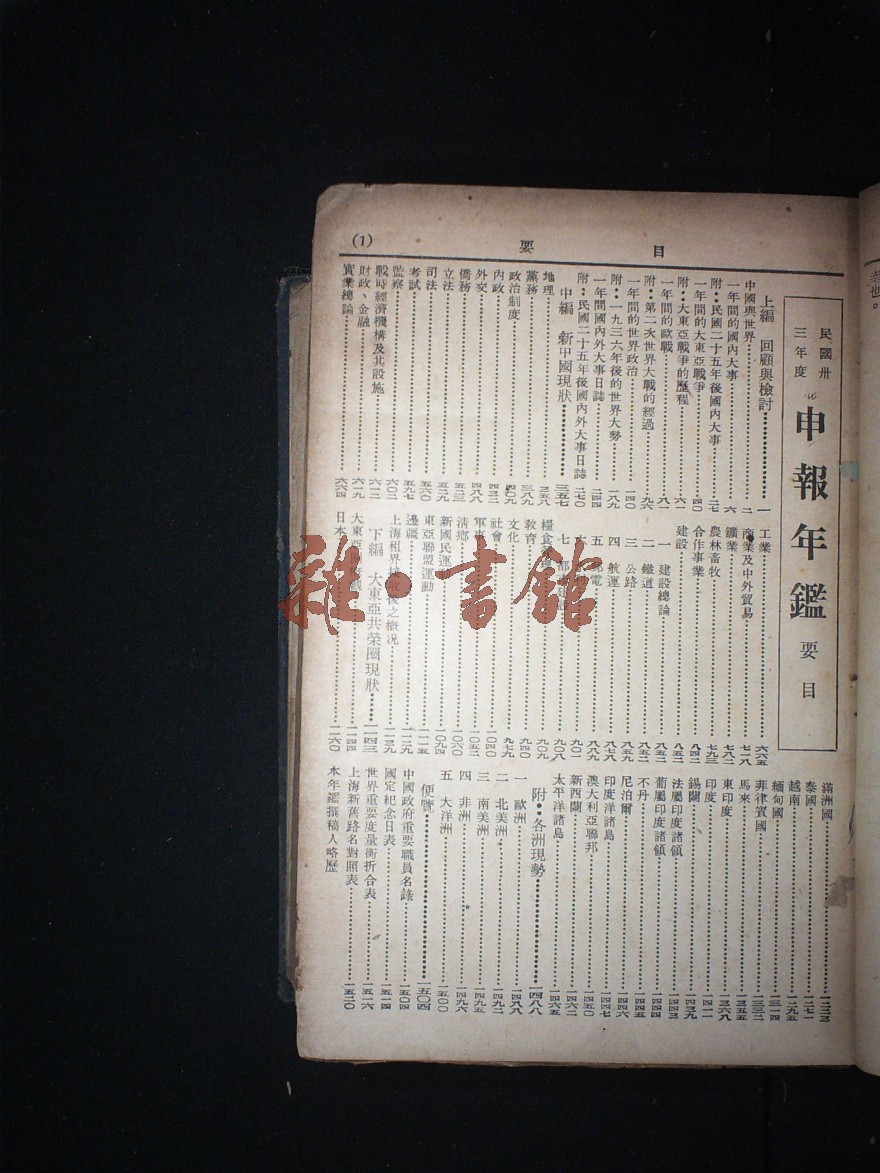 目　要
(1)
民國卅
三年度
申報年鑑 要目
上編　回顧與檢討……一
中國與世界……二
一年間的國內大事……六
附：民國二十五年後國內大事……二七
一年間的大東亞戰爭……四〇
附：大東亞戰爭的歷程……六一
一年間的歐戰……八一
附：第二次世界大戰的經過……九六
一年間的世界政治……一四〇
附：一九三六年後的世界大勢……一八九
一年間國內外大事日誌……二四四
附：民國二十五年後國內外大事日誌……二七〇
中編　新中國現狀……三五七
地理……三五八
黨務……三八九
政治制度……四〇九
內政……四三二
外交……四八八
僑務……五二三
立法……五二九
司法……五六〇
考試……五九七
監察……六〇二
戰時經濟機構及其設施……六一二
財政、金融……六一九
實業總論……六六四
工業……六六五
商業及中外貿易……七一八
鑛業……七八二
農林畜牧……七九三
合作事業……八四二
建設……八五二
一　建設總論……八五二
二　鐵道……八五二
三　公路……八五九
四　航運……八七八
五　郵電……八九九
六　水利……九〇一
七　都市建設……九〇八
糧食管理……九〇九
教育……九四〇
文化……九七九
社會……一〇四〇
軍事……一〇五二
清鄉……一〇六〇
新國民運動……一〇九四
東亞聯盟運動……一一一五
邊疆……一一二九
上海租界接收後之概況……一一三九
下編　大東亞共榮圈現狀……一一四三
大東亞……一一四四
日本……一一六〇
滿洲國……一二三三
泰國……一二七一
越南……一二九五
緬甸國……一三一四
菲律賓國……一三三二
馬來……一三五五
東印度……一三六八
印度……一四一一
錫蘭……一四三九
法屬印度諸領……一四四三
葡屬印度諸領……一四四四
不丹……一四四五
尼泊爾……一四四六
印度洋諸島……一四四七
澳大利亞聯邦……一四五〇
新西蘭……一四六二
太平洋諸島……一四六五
附：各洲現勢……一四八八
一　歐洲……一四八八
二　北美洲……一四九二
三　南美洲……一四九五
四　非洲……一四九六
五　大洋洲……一五〇〇
便覽……一五〇四
中國政府重要職員名錄……一五〇四
國定紀念日表……一五一四
世界重要度量衡折合表……一五一六
上海新舊路名對照表……一五二〇
本年鑑撰稿人略歷
雜·書館